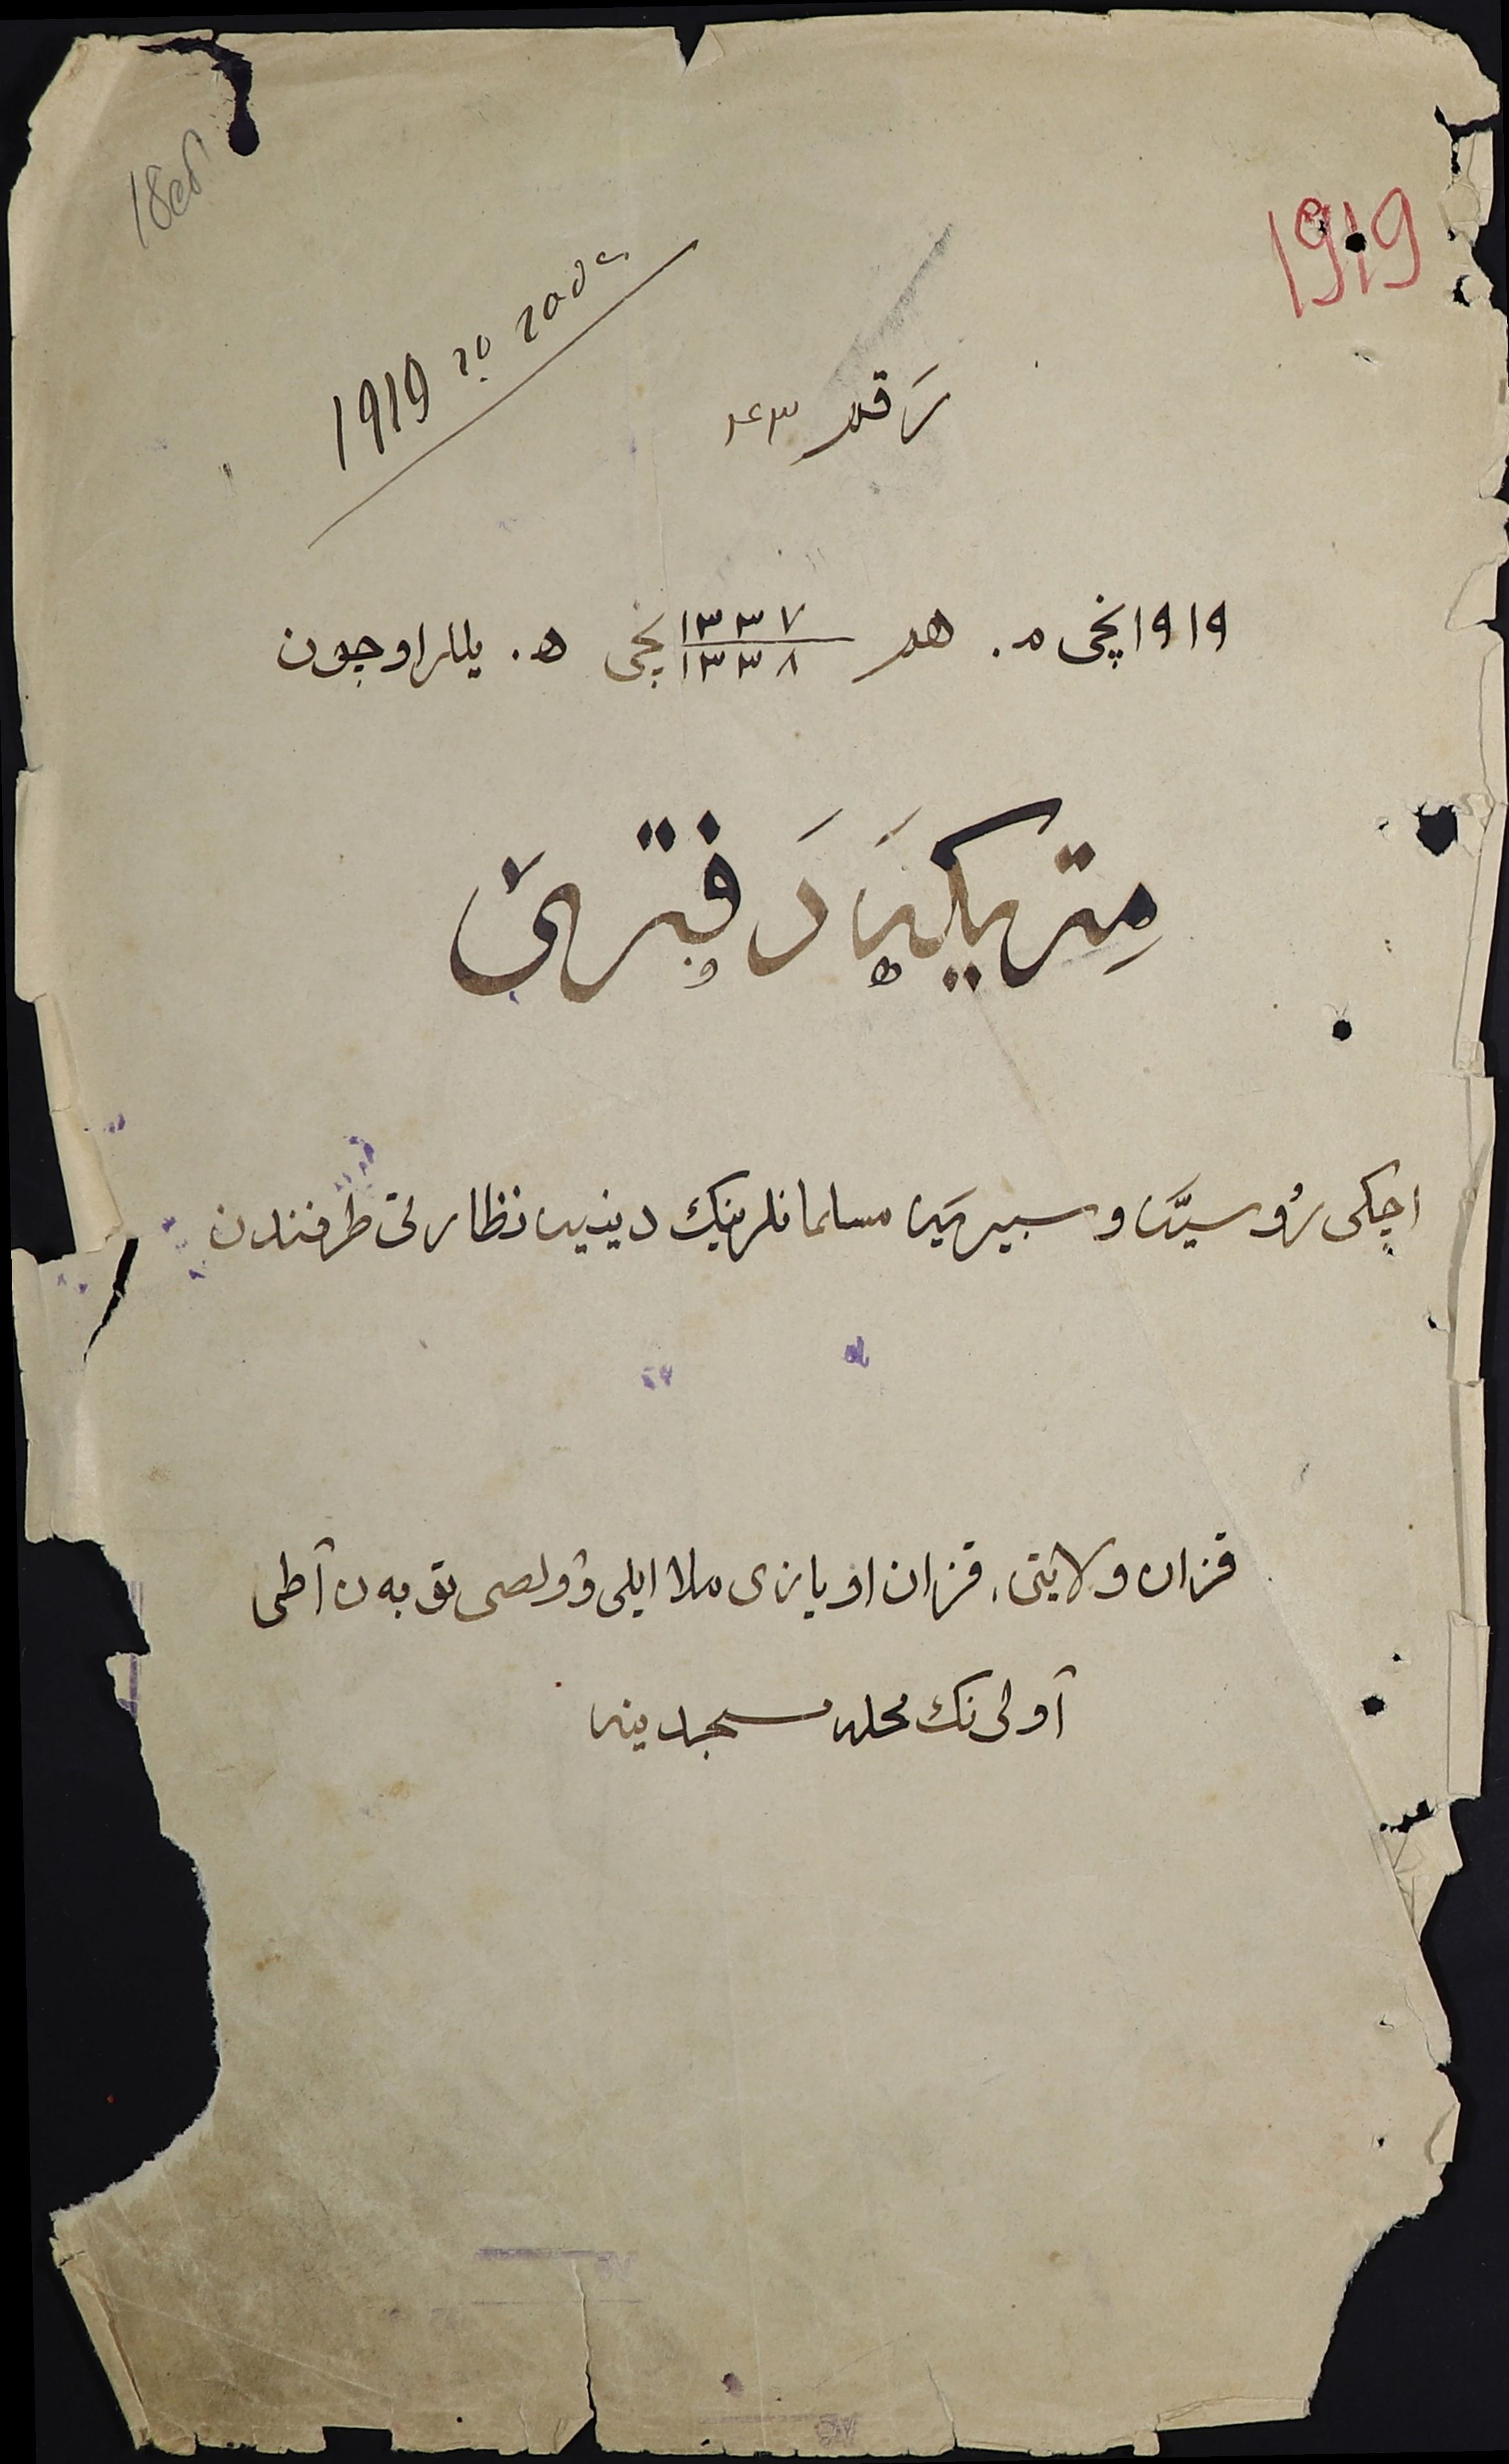 1919
1919 го года
رَقم ٢٤٣
١٩١٩ نچی م. هم ١٣٣٧/١٣٣٨ نچی ه. یللر اوچون
مِتریکیَه دَفتری
اچکی رُوسیَّه و سیبیریَه مسلمانلرینڭ دینیه نظارتی طرفندن
قزان ولایتی، قزان اویازی ملا ایلی وۆلصی توبەن آطی
آولی‌نڭ محله مسجدینه